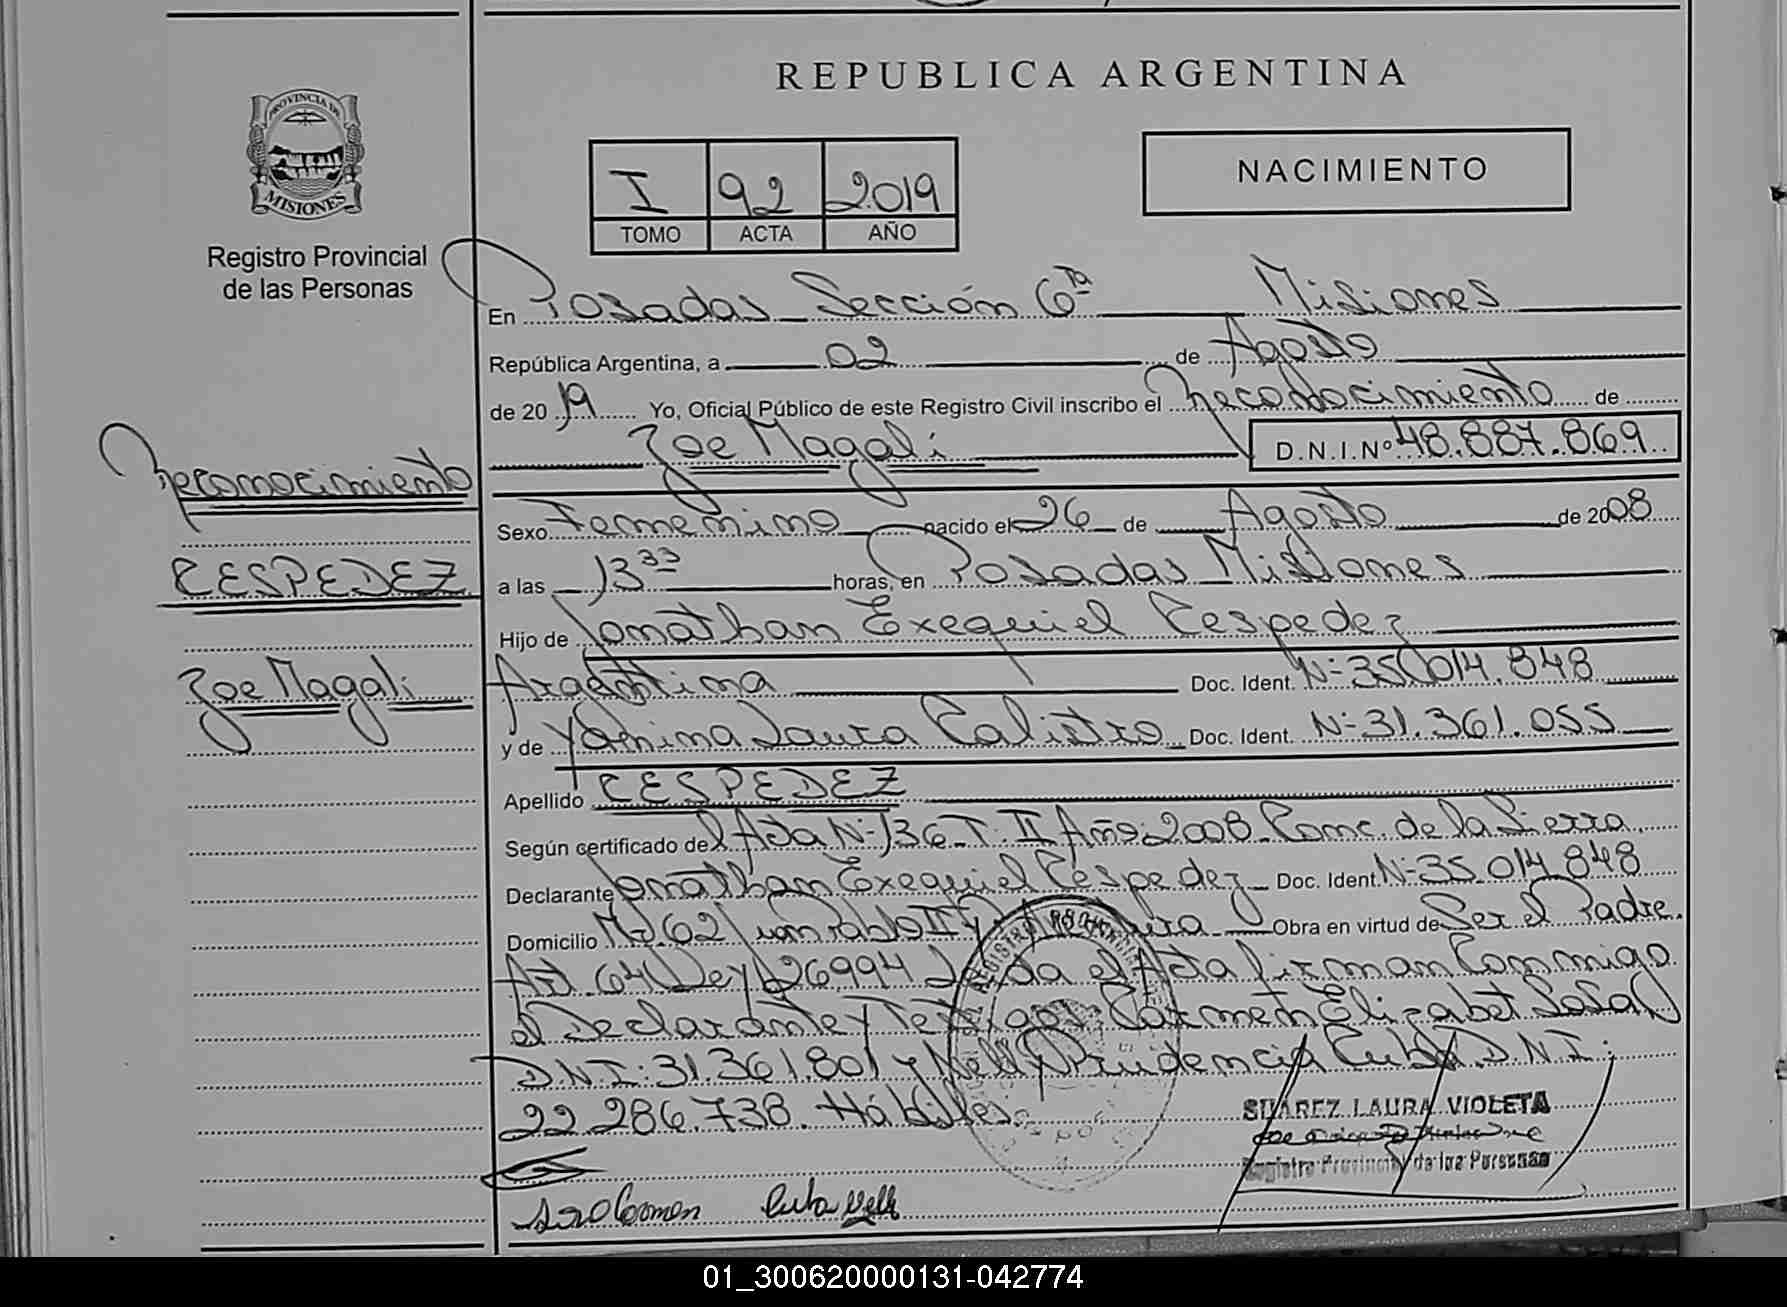 REPUBLICA ARGENTINA
PROVINCIA DE
MISIONES
Registro Provincial
de las Personas
I 92 2019
TOMO ACTA AÑO
NACIMIENTO
En Posadas Sección 6ta Misiones
República Argentina, a 02 de Agosto
de 2019 Yo, Oficial Público de este Registro Civil inscribo el Reconocimiento de
Zoe Magali D.N.I.Nº 48.887.869
Reconocimiento
CESPEDEZ
Zoe Magali
Sexo Femenino nacido el 26 de Agosto de 2008
a las 13 33 horas, en Posadas Misiones
Hijo de Jonathan Exequiel Cespedez
Argentina Doc. Ident. Nº 35.014.848
y de Yamina Laura Calistro Doc. Ident. Nº 31.361.055
Apellido CESPEDEZ
Según certificado del Acta Nº 136 T: II Año: 2008 Conc. de la Sierra
Declarante Jonathan Exequiel Cespedez Doc. Ident. Nº 35.014.848
Domicilio 62 Juan Pablo II y Obra en virtud de Ser el Padre.
Art. 64 Ley 26994 Leída el Acta firman Conmigo
el Declarante y Testigos: Carmen Elizabet Sosa
D.N.I: 31.361.801 y Nelly Prudencia Cuba D.N.I:
22.286.738. Hábiles.
SUAREZ LAURA VIOLETA
Registro Provincial de las Personas
Carmen Cuba Nelly
01_300620000131-042774